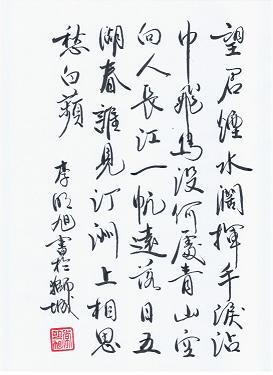 望君煙水闊揮手淚沾
巾飛鳥沒何處青山空
向人長江一帆遠落日五
湖春誰見汀洲上相思
愁白蘋
李明旭書於獅城